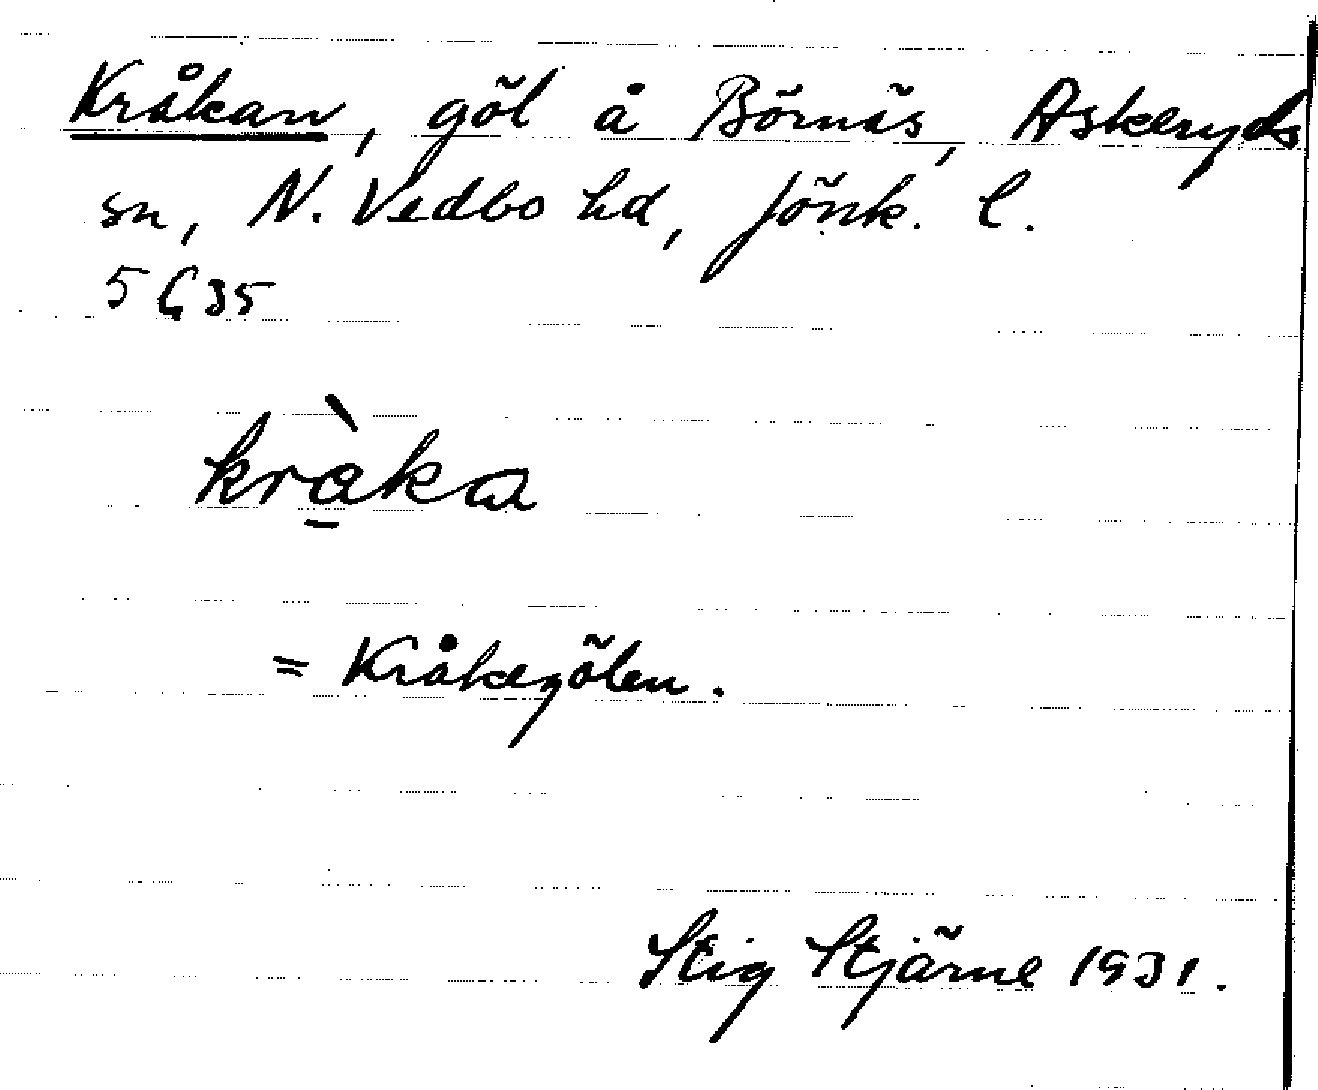 Kråkan, göl å Börnäs, Askeryds
sn, N. Vedbo hd, Jönk. l.
5 G 35
krå̱̀ka
= Kråkegölen.
Stig Stjärne 1931.